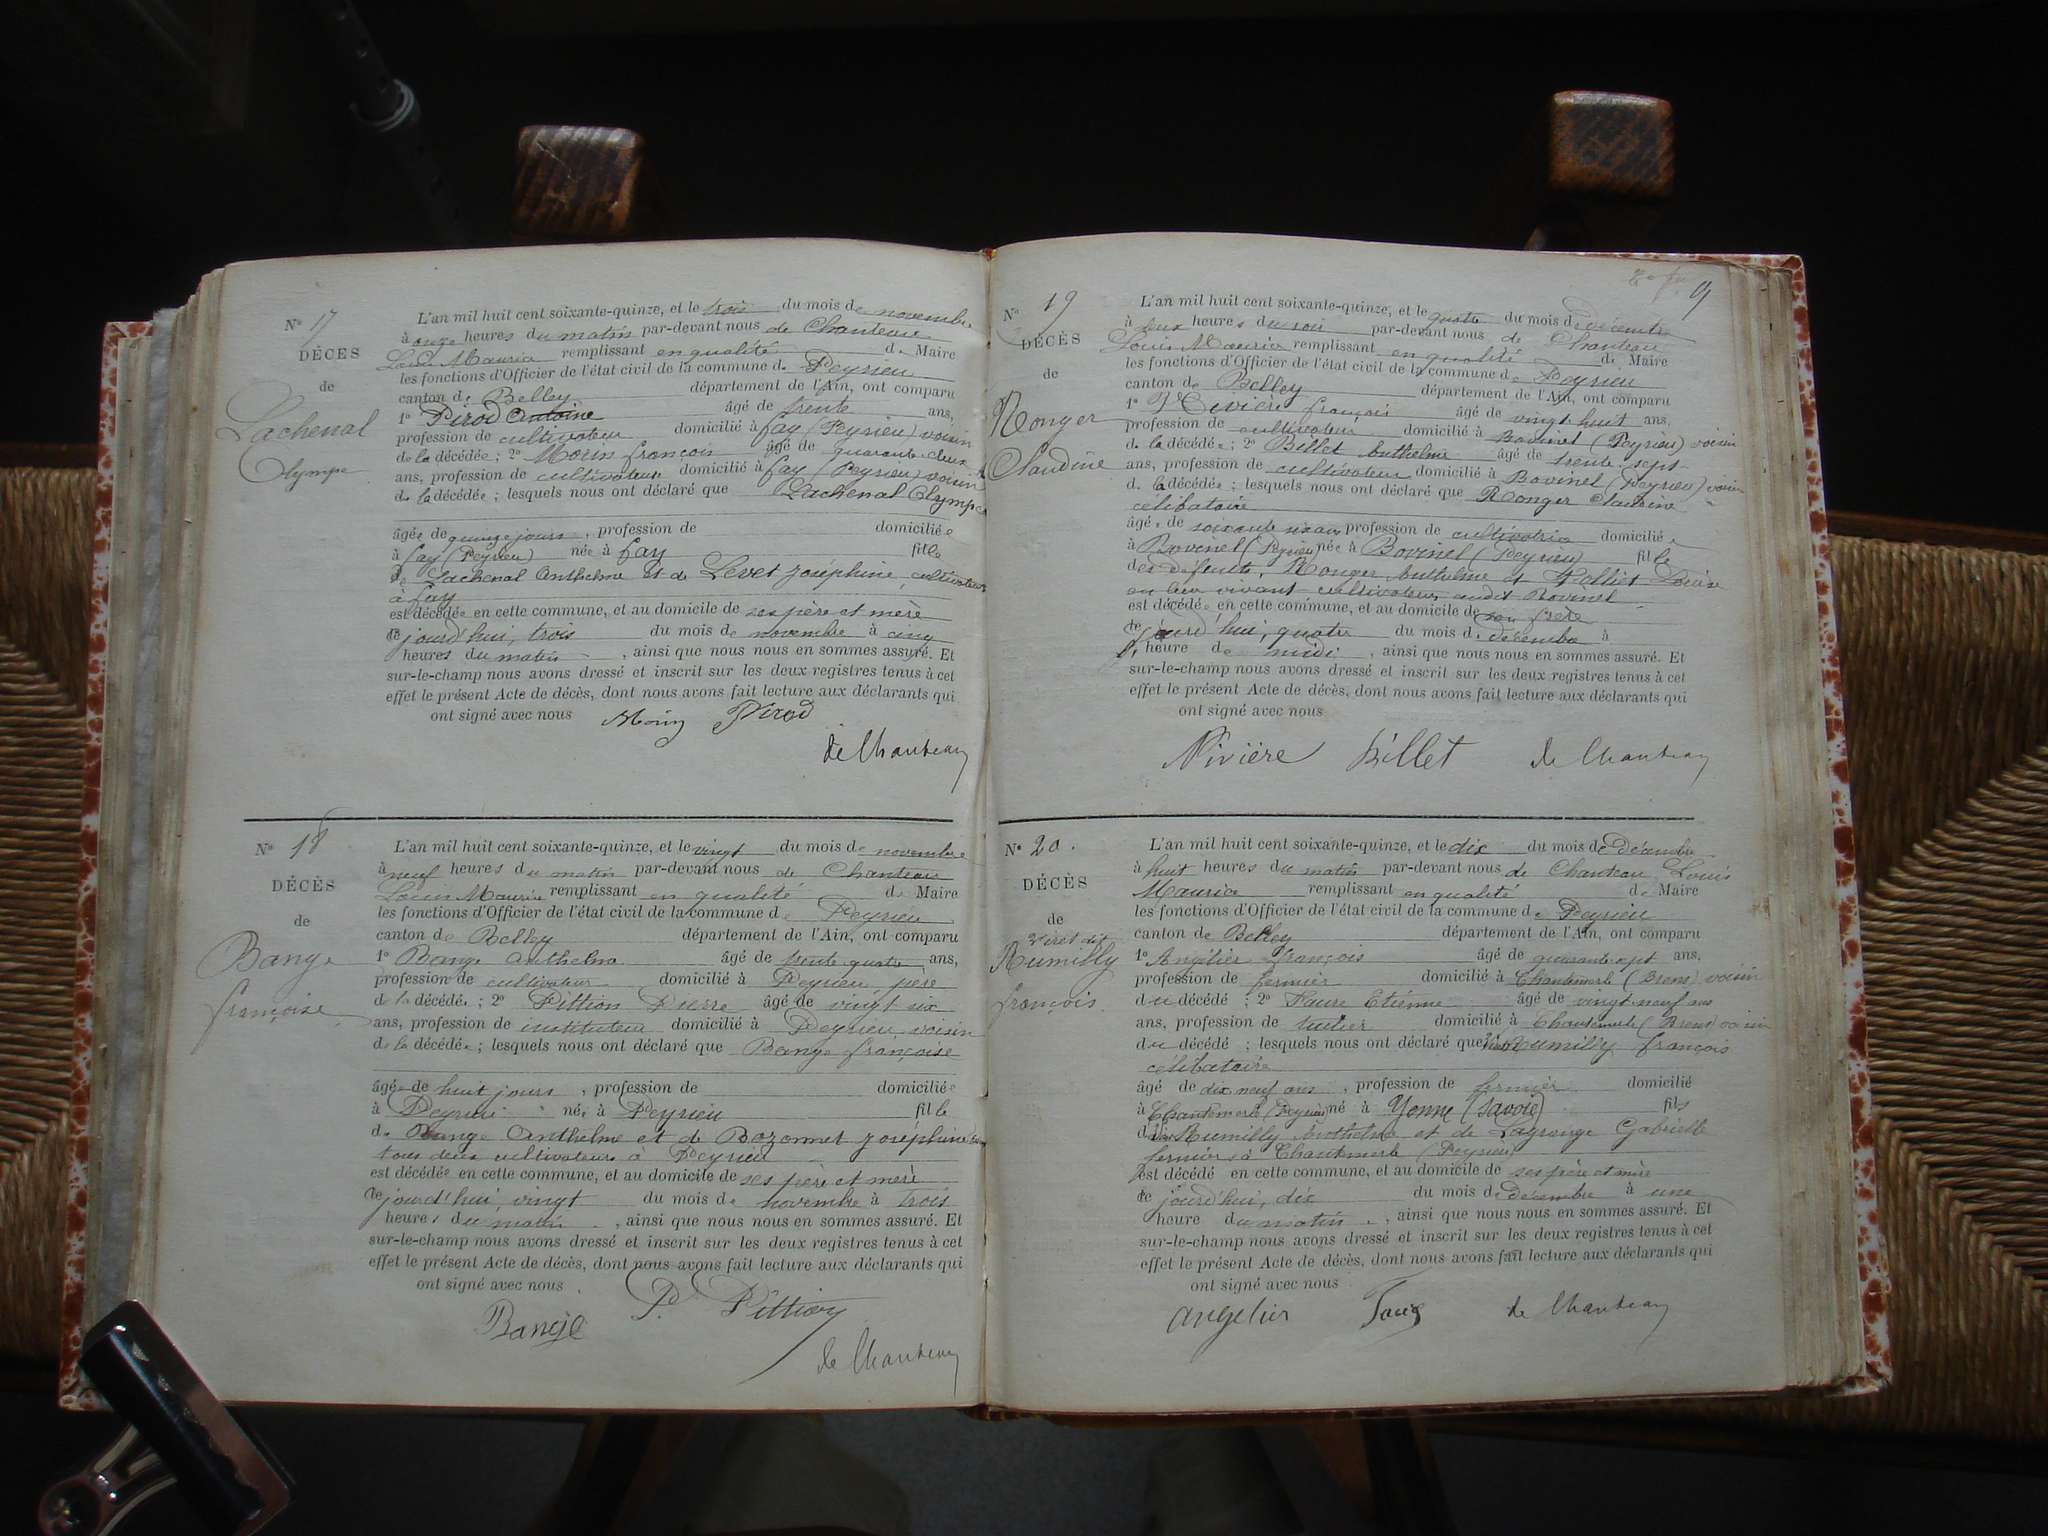 N° 17
DÉCES
de
Lachenal
Olympe
L'an mil huit cent soixante-quinze, et le trois du mois de novembre
à onze heures du matin par-devant nous de Chanteau
Louis Maurice remplissant en qualité de Maire
les fonctions d'Officier de l'état civil de la commune de Peyrieu
canton de Belley département de l'Ain, ont comparu
1° Pirod Antoine âgé de trente ans,
profession de cultivateur domicilié à fay (Peyrieu) voisin
de la décédée ; 2° Morin françois âgé de quarante deux
ans, profession de cultivateur domicilié à fay (Peyrieu) voisin
de la décédée ; lesquels nous ont déclaré que Lachenal Olympe
âgée de quinze jours , profession de domiciliée
à fay (Peyrieu) née à fay fille
de Lachenal Anthelme et de Levet Joséphine, cultivateurs
à fay
est décédée en cette commune, et au domicile de ses père et mère
ce jourd'hui, trois du mois de novembre à cinq
heures du matin , ainsi que nous nous en sommes assuré. Et
sur-le-champ nous avons dressé et inscrit sur les deux registres tenus à cet
effet le présent Acte de décès, dont nous avons fait lecture aux déclarants qui
ont signé avec nous Morin Pirod
de Chanteau
N° 18
DÉCÈS
de
Bange
françoise
L'an mil huit cent soixante-quinze, et le vingt du mois de novembre
à neuf heures du matin par-devant nous de Chanteau
Louis Maurice remplissant en qualité de Maire
les fonctions d'Officier de l'état civil de la commune de Peyrieu
canton de Belley département de l'Ain, ont comparu
1° Bange Anthelme âgé de trente quatre ans,
profession de cultivateur domicilié à Peyrieu père
de la décédée ; 2° Pittion Pierre âgé de vingt six
ans, profession de instituteur domicilié à Peyrieu voisin
de la décédée ; lesquels nous ont déclaré que Bange françoise
âgée de huit jours , profession de domiciliée
à Peyrieu née à Peyrieu fille
de Bange Anthelme et de Bozonnet Joséphine
tous deux cultivateurs à Peyrieu
est décédée en cette commune, et au domicile de ses père et mère
ce jourd'hui, vingt du mois de novembre à trois
heures du matin , ainsi que nous nous en sommes assuré. Et
sur-le-champ nous avons dressé et inscrit sur les deux registres tenus à cet
effet le présent Acte de décès, dont nous avons fait lecture aux déclarants qui
ont signé avec nous
Bange P. Pittion
de Chanteau
9
N° 19
DÉCÈS
de
Ronger
Claudine
L'an mil huit cent soixante-quinze, et le quatre du mois de décembre
à deux heures du soir par-devant nous de Chanteau
Louis Maurice remplissant en qualité de Maire
les fonctions d'Officier de l'état civil de la commune de Peyrieu
canton de Belley département de l'Ain, ont comparu
1° Rivière françois âgé de vingt huit ans,
profession de cultivateur domicilié à Bovinel (Peyrieu) voisin
de la décédée ; 2° Billet Anthelme âgé de trente sept
ans, profession de cultivateur domicilié à Bovinel (Peyrieu) voisin
de la décédée ; lesquels nous ont déclaré que Ronger Claudine
célibataire
âgée de soixante profession de cultivatrice domiciliée
à Bovinel (Peyrieu) née à Bovinel (Peyrieu) fille
des défunts, Ronger Anthelme et Louise
en leur vivant cultivateurs audit Bovinel
est décédée en cette commune, et au domicile de son frère
ce jourd'hui, quatre du mois de décembre à
l' heure de midi , ainsi que nous nous en sommes assuré. Et
sur-le-champ nous avons dressé et inscrit sur les deux registres tenus à cet
effet le présent Acte de décès, dont nous avons fait lecture aux déclarants qui
ont signé avec nous
Rivière Billet de Chanteau
N° 20.
DÉCÈS
de
Viret dit
Rumilly
françois
L'an mil huit cent soixante-quinze, et le dix du mois de Décembre
à huit heures du matin par-devant nous de Chanteau Louis
Maurice remplissant en qualité de Maire
les fonctions d'Officier de l'état civil de la commune de Peyrieu
canton de Belley département de l'Ain, ont comparu
1° Angélier françois âgé de quarante sept ans,
profession de fermier domicilié à Chantemerle (Brens) voisin
du décédé ; 2° Faure Etienne âgé de vingt neuf ans
ans, profession de tuilier domicilié à Chantemerle (Brens) voisin
du décédé ; lesquels nous ont déclaré que Rumilly françois
célibataire
âgé de dix neuf ans , profession de fermier domicilié
à Chantemerle (Peyrieu) né à Yenne (Savoie) fils
de Rumilly Anthelme et de Lagrange Gabrielle
fermiers à Chantemerle (Peyrieu)
est décédé en cette commune, et au domicile de ses père et mère
ce jourd'hui, dix du mois de Décembre à une
heure du matin , ainsi que nous nous en sommes assuré. Et
sur-le-champ nous avons dressé et inscrit sur les deux registres tenus à cet
effet le présent Acte de décès, dont nous avons fait lecture aux déclarants qui
ont signé avec nous
Angelier Faure de Chanteau